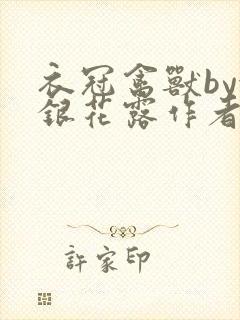 衣冠禽獸by
銀花露作者
許家印